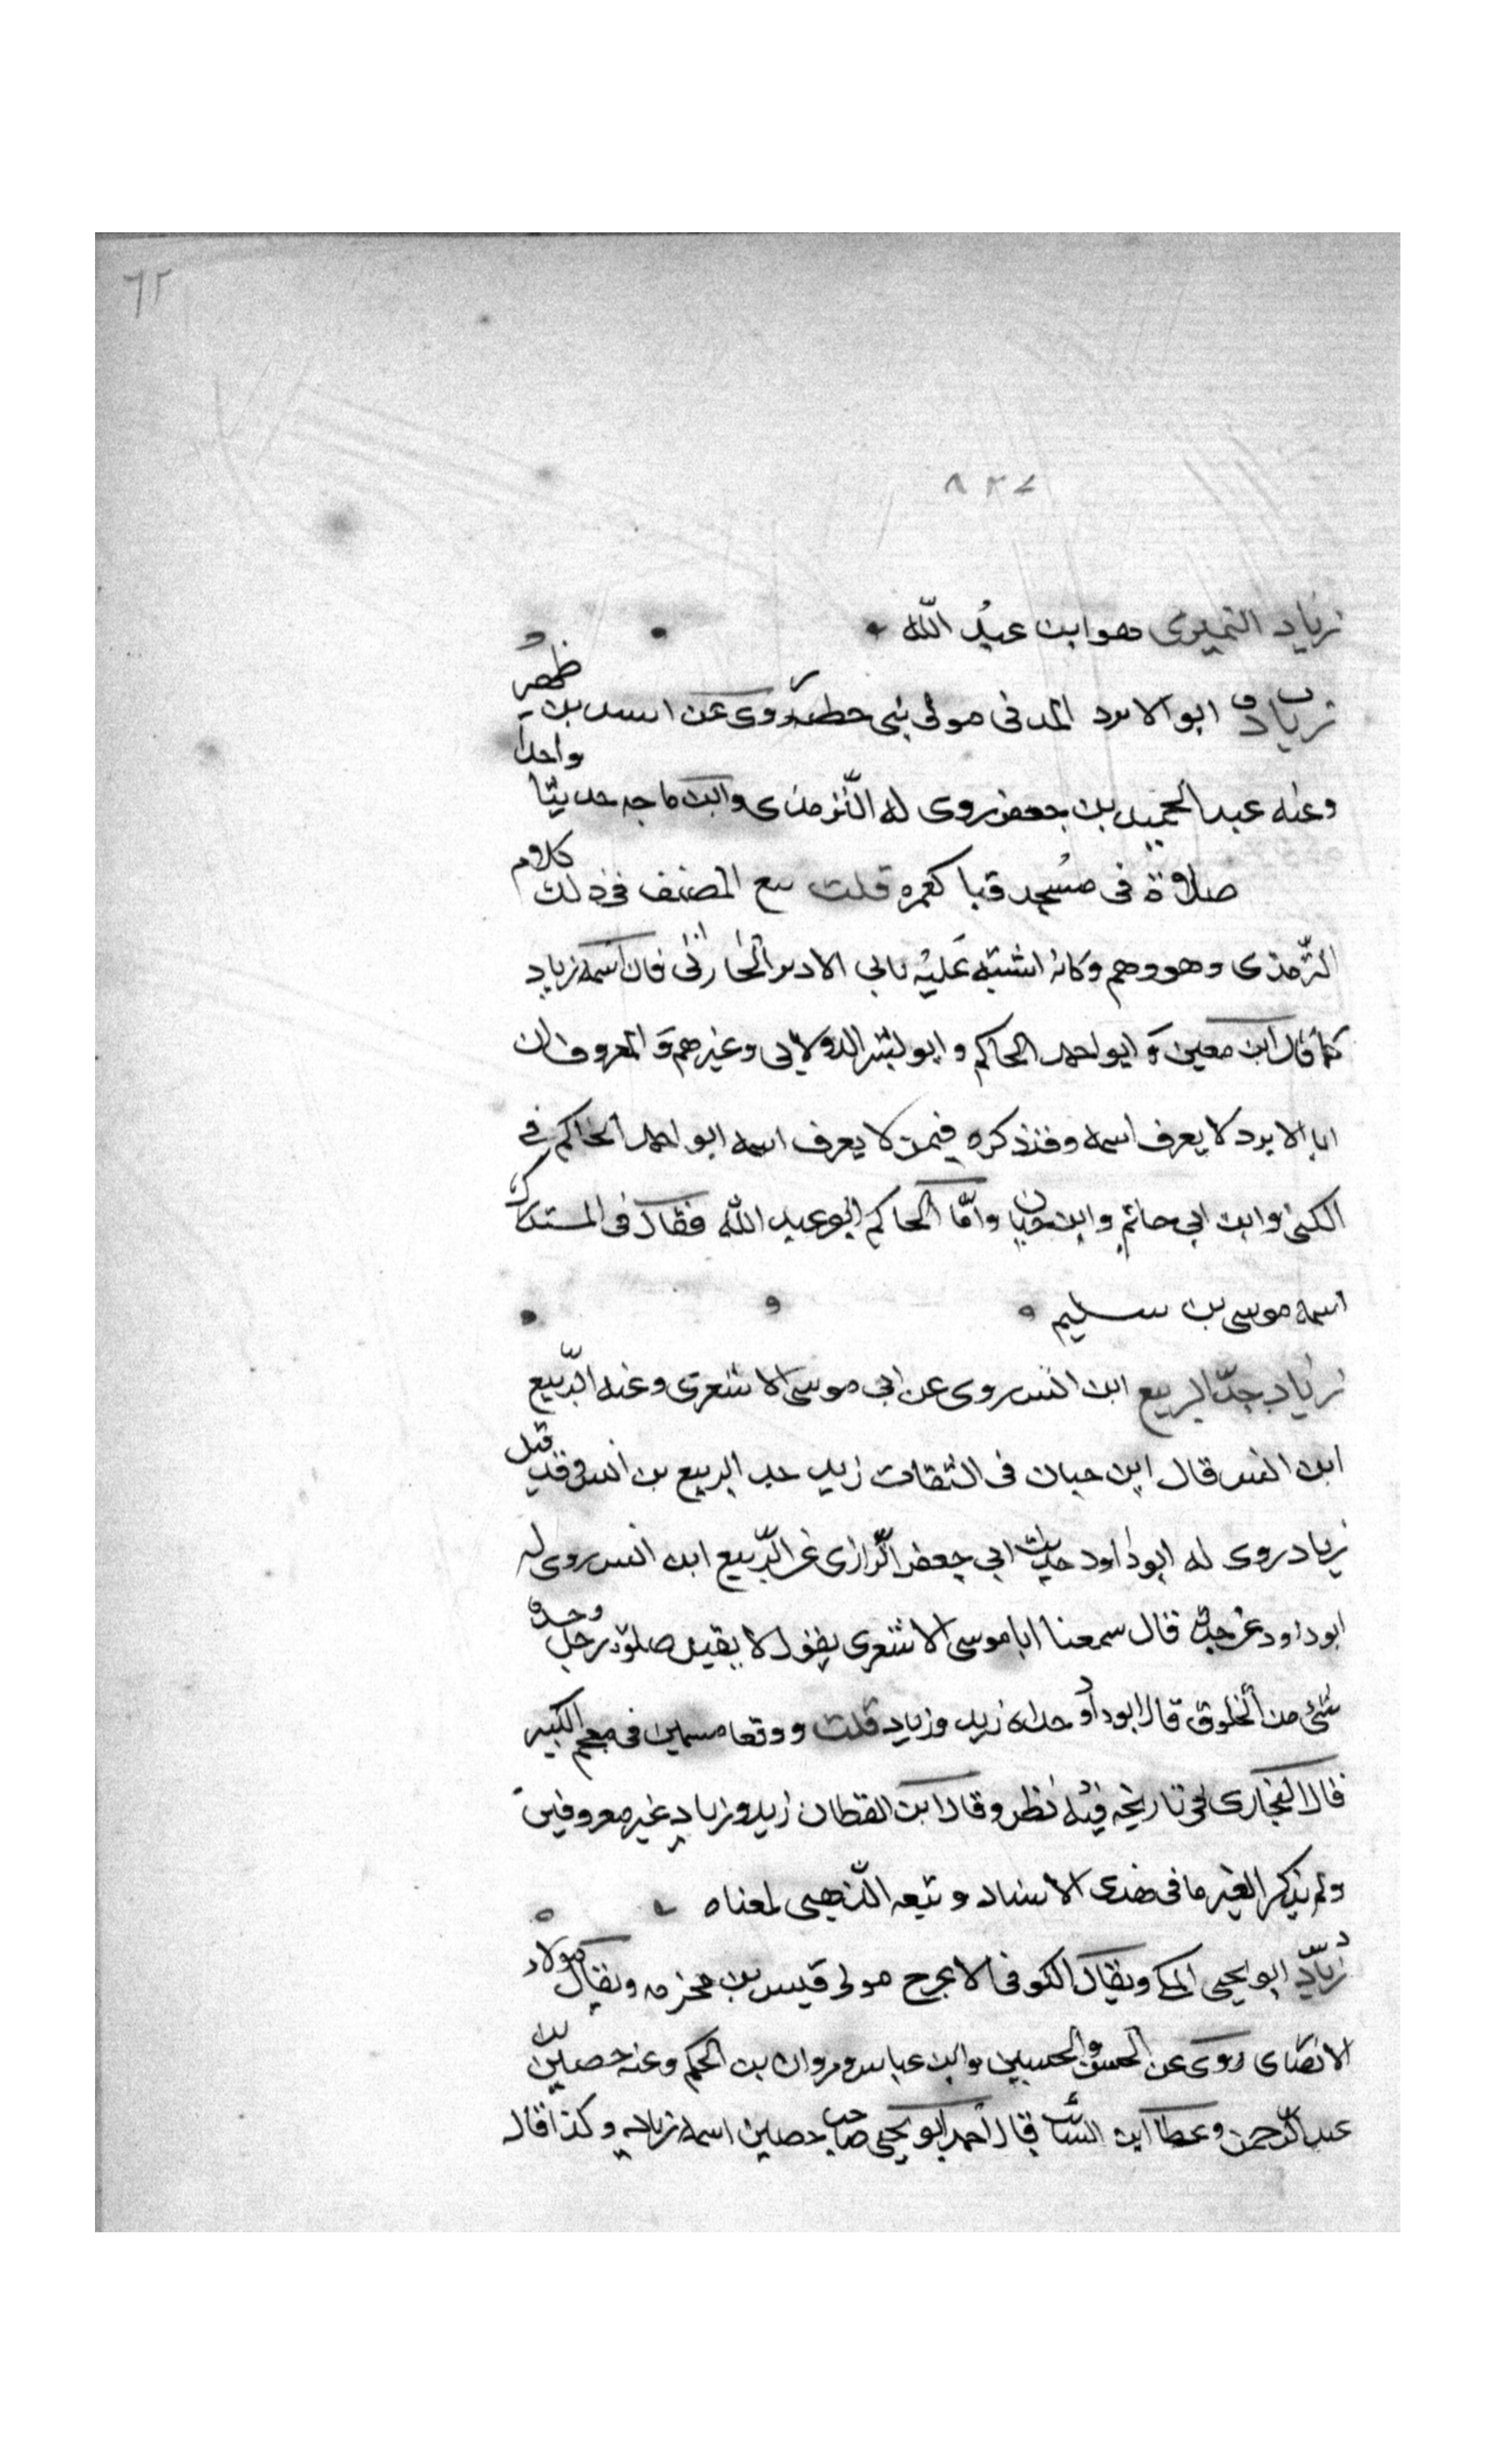 ٦٢
٨٢٧
زياد النميرى هو ابن عبد الله
زياد ابو الابرد المدنى مولى بنى خطمه روى عن اسيد بن ظهير
وعنه عبد الحميد بن جعفر روى له الترمذى وابن ماجه حديثا واحدا
صلاة فى مسجد قبا كعمره قلت تبع المصنف فى ذلك كلام
الترمذى وهو وهم وكانه اشتبه عليه بابى الادبر الحارثى فان اسمه زياد
كما قال ابن معين وابو احمد الحاكم وابو بشر الدولابى وغيرهم والمعروف ان
ابا الابرد لا يعرف اسمه وقد ذكره فيمن لا يعرف اسمه ابو احمد الحاكم فى
الكنى وابن ابى حاتم وابن حبان واما الحاكم ابو عبد الله فقال فى المستدرك
اسمه موسى بن سليم
زياد جد الربيع ابن انس روى عن ابى موسى الاشعرى وعنه الربيع
ابن انس قال ابن حبان فى الثقات زيد جد الربيع بن انس وقد قيل
زياد روى له ابو داود حديث ابى جعفر الرازى عن الربيع ابن انس روى له
ابو داود عن جديه قال سمعنا ابا موسى الاشعرى يقول لا يقبل صلوة رجل وجسده
شئ من الخلوق قال ابو داود جداه زيد وزياد قلت ووقعا مسمين فى معجم الكبير
قال البخارى فى تاريخه فيه نظر وقال ابن القطان زيد وزياد غير معروفين
ولم يذكر الغير ما فى هذى الاسناد وتبعه الذهبى لمعناه
زياد ابو يحيى المكى ويقال الكوفى الاعرج مولى قيس بن مخرمه ويقال مولا
الانصارى روى عن الحسن والحسين وابن عباس ومروان بن الحكم وعنه حصين بن
عبد الرحمن وعطا ابن السائب قال احمد ابو يحيى صاحب حصين اسمه زياد وكذا قاله